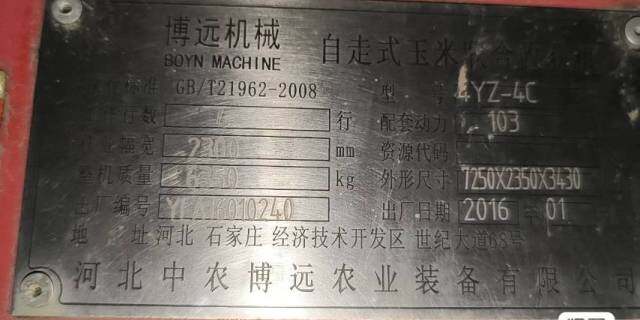 博远机械
BOYN MACHINE
自走式玉米收合收获机
执行标准 GB/T21962-2008 型 号 4YZ-4C
工作行数 4 行 配套动力 103
作业幅宽 2300 mm 资源代码
整机质量 kg 外形尺寸 7250X2350X3430
出厂编号 010240 出厂日期 2016 年 01
地 址 河北 石家庄 经济技术开发区 世纪大道68号
河北中农博远农业装备有限公司